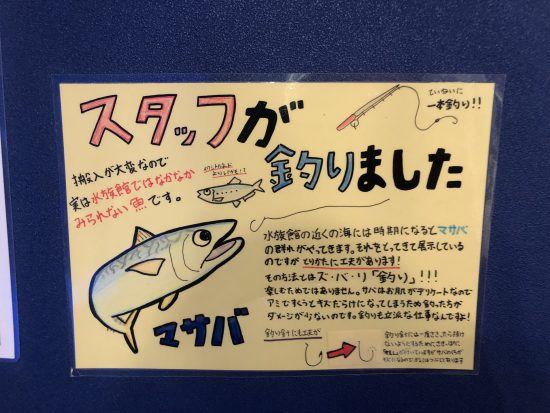 スタッフが
釣りました
ていねいに
一本釣り!!
搬入が大変なので
実は水族館ではなかなか
みられない魚です。
マサバ
水族館の近くの海には時期になるとマサバ
の群れがやってきます。それをとってきて展示している
のですがとりかたに工夫があります!
その方法とはズ・バ・リ「釣り」!!!
楽しむためではありません。サバはお肌がデリケートなので
アミですくうとキズだらけになってしまうため釣ったほうが
ダメージが少ないのです。釣りも立派な仕事なんですよ!
釣り針にも工夫が
釣り針には一度ささったら抜け
ないようにするために